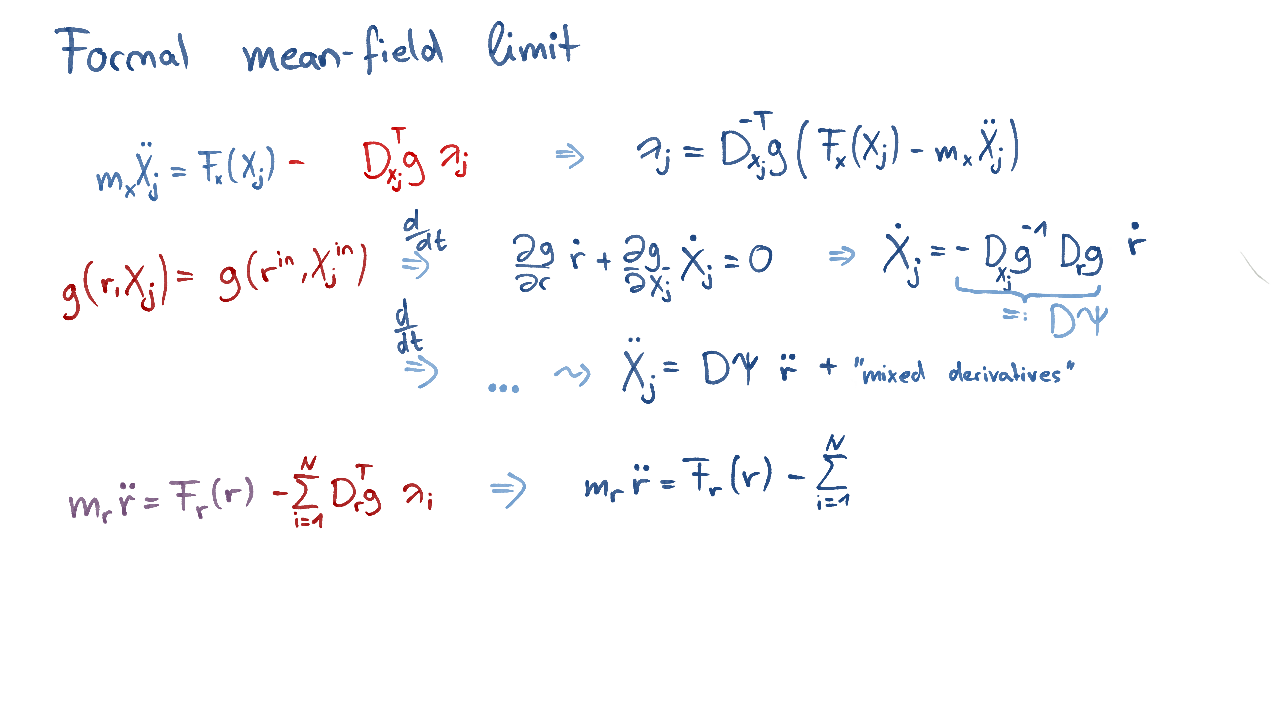 Formal mean-field limit
m_x Ẍ_j = F_x(X_j) - D_{x_j}^T g λ_j ⇒ λ_j = D_{x_j}^{-T} g ( F_x(X_j) - m_x Ẍ_j )
g(r, X_j) = g(r^{in}, X_j^{in}) d/dt ⇒ ∂g/∂r ṙ + ∂g/∂X_j Ẋ_j = 0 ⇒ Ẋ_j = - D_{x_j} g^{-1} D_r g ṙ
=: DΨ
d/dt ⇒ ... ⇝ Ẍ_j = DΨ r̈ + "mixed derivatives"
m_r r̈ = F_r(r) - ∑_{i=1}^N D_r^T g λ_i ⇒ m_r r̈ = F_r(r) - ∑_{i=1}^N